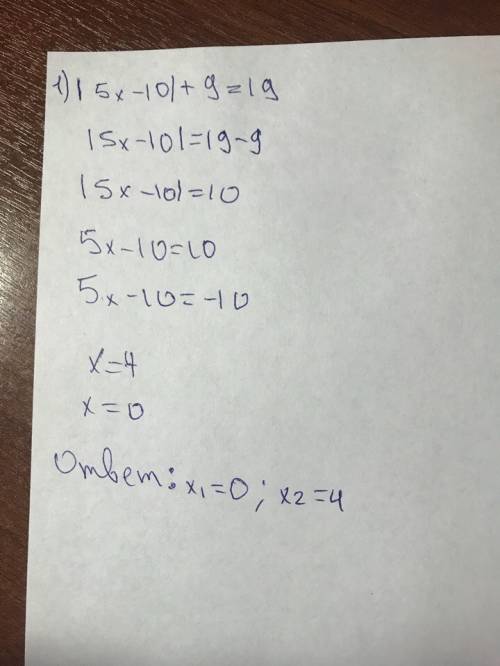 1) |5x-10|+9=19
|5x-10|=19-9
|5x-10|=10
5x-10=10
5x-10=-10
x=4
x=0
Ответ: x1=0; x2=4